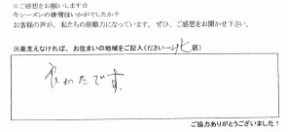 ☆ご感想をお願いします☆
今シーズンの静岡はいかがでしたか?
お客様の声が、私たちの原動力になっています。ぜひ、ご感想をお聞かせ下さい。
※差支えなければ、お住まいの地域をご記入ください(北区)
良かったです。
ご協力ありがとうございました!